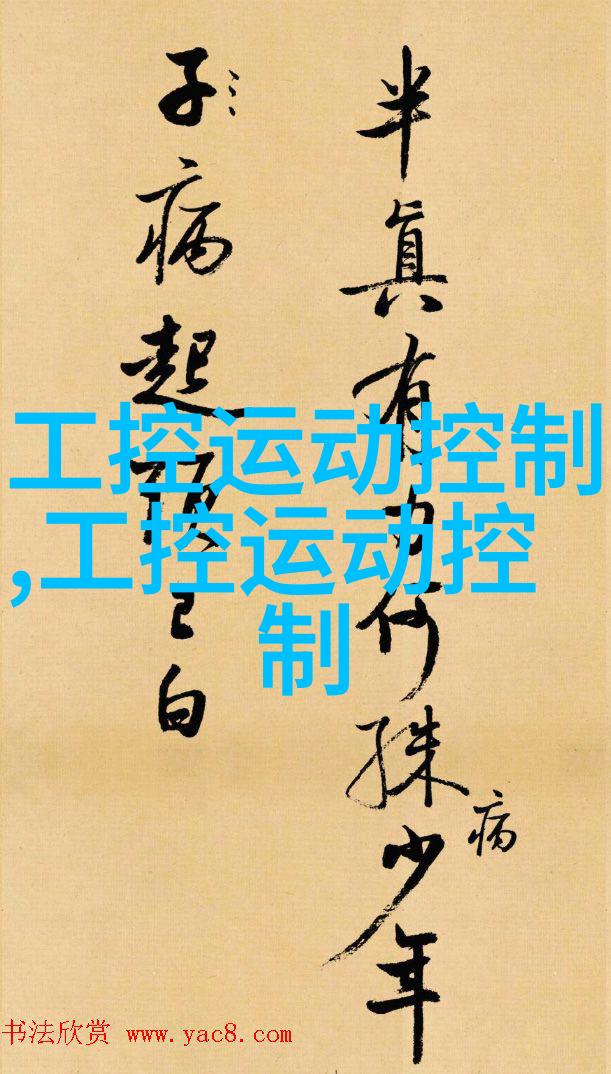 半真有何殊少年
病
子病起已白
工控运动控制
,工控运动控
制
书法欣赏 www.yac8.com